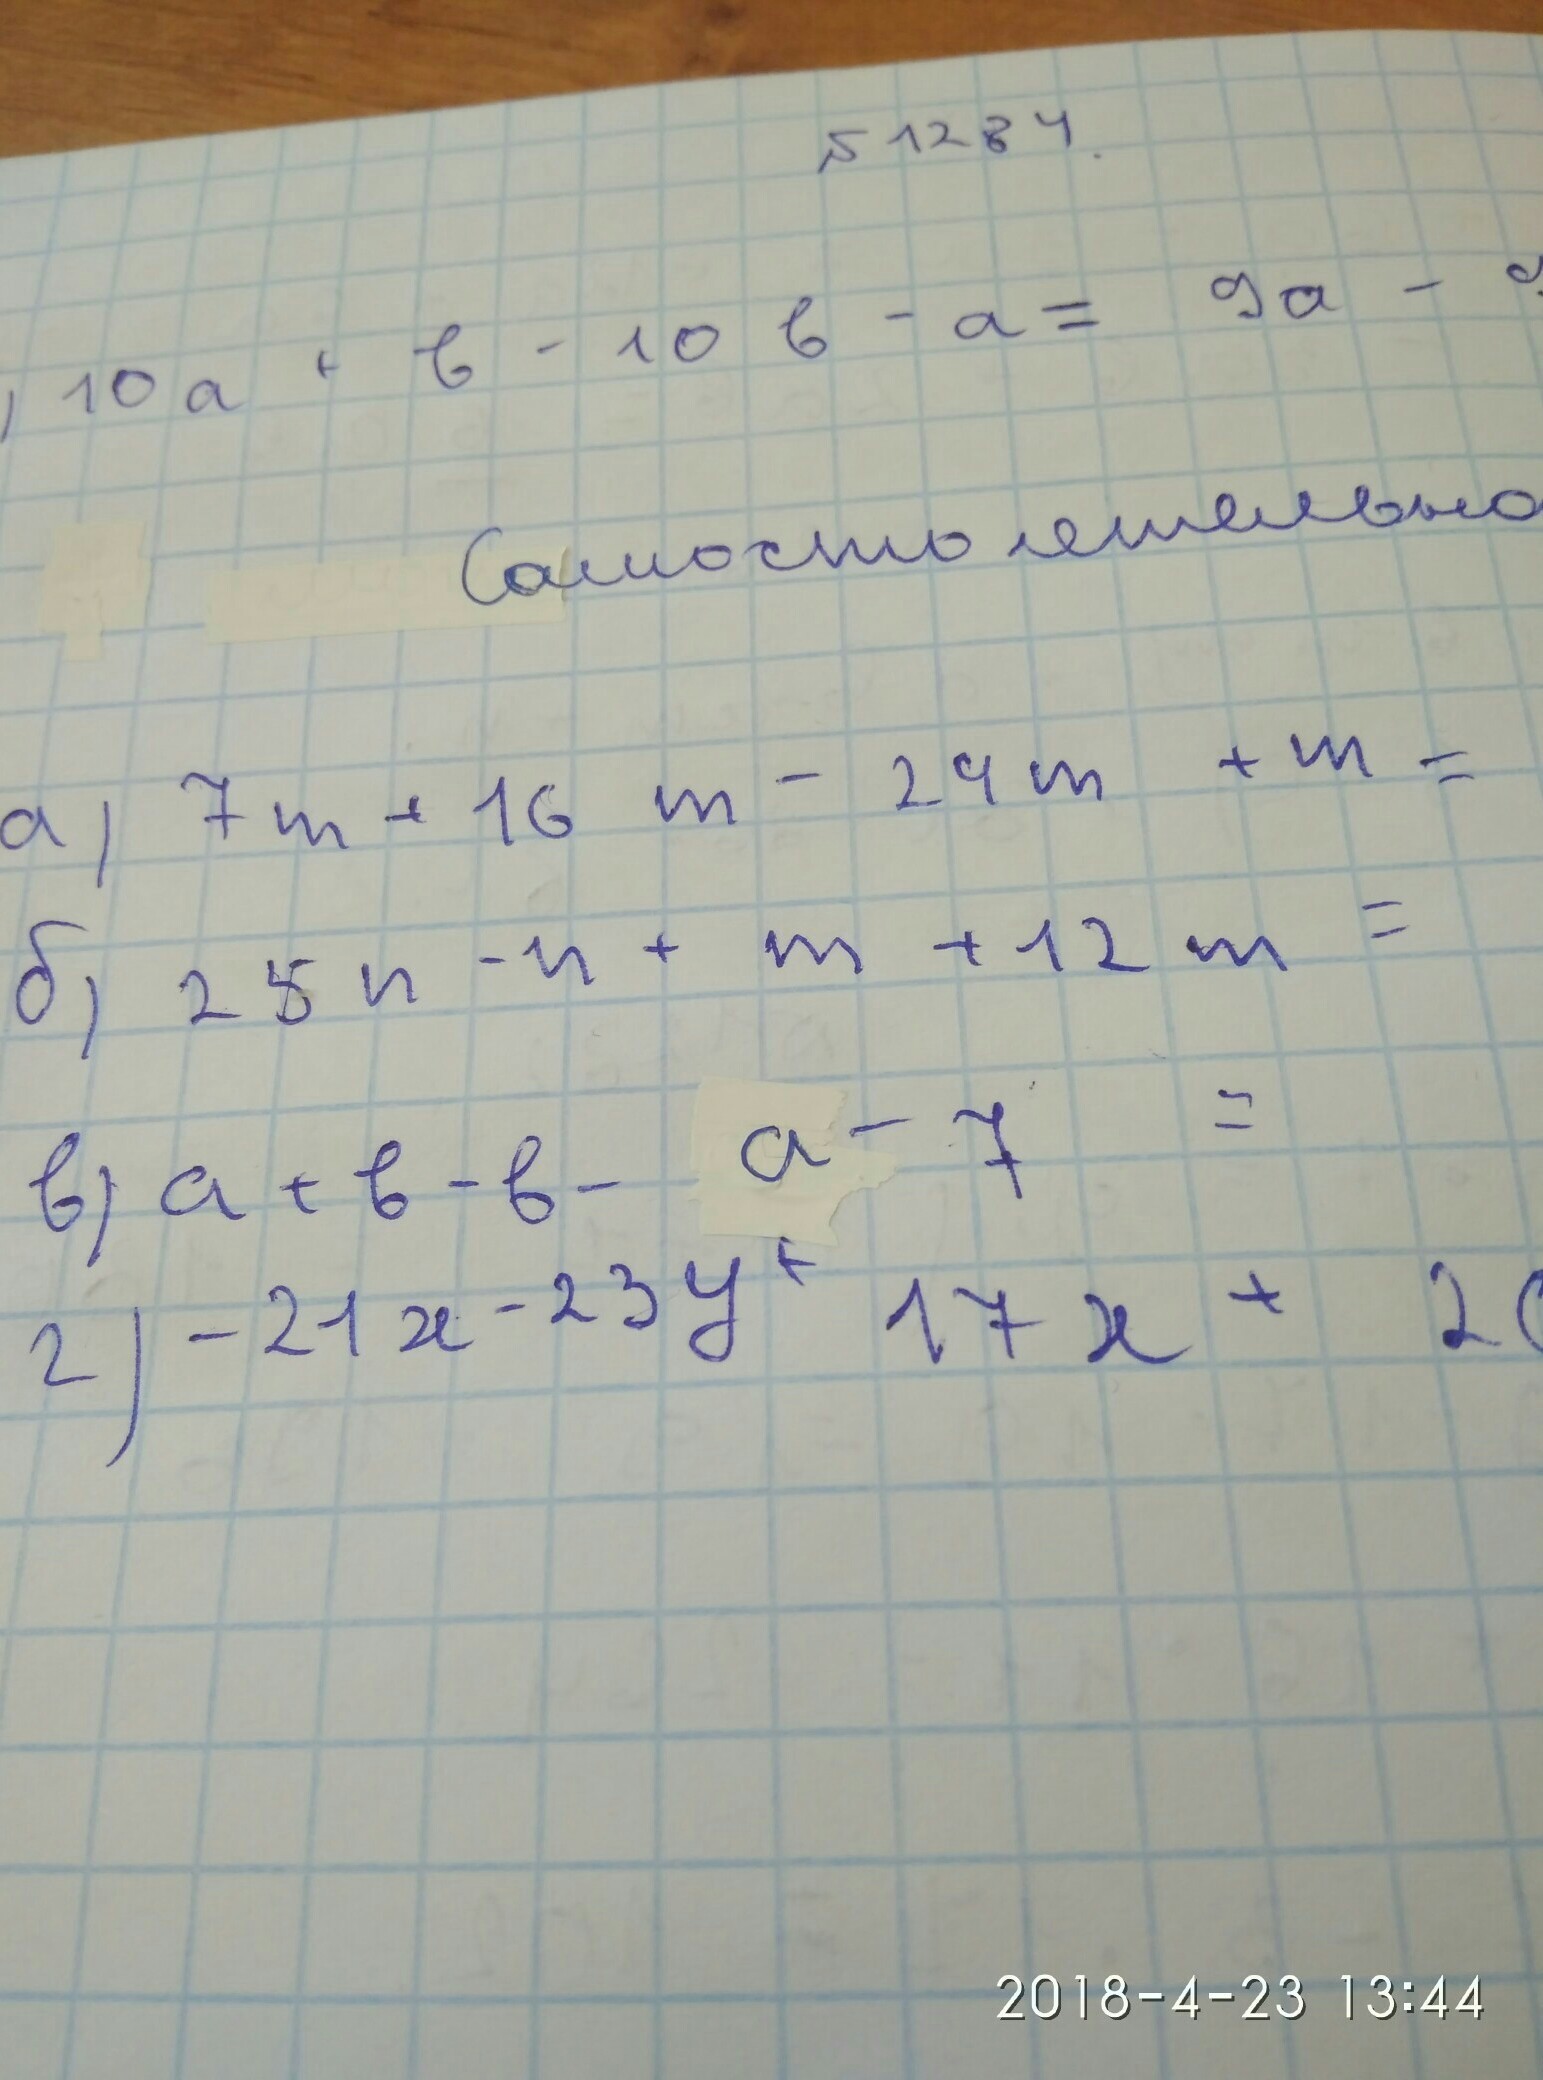 № 1284.
) 10а + в - 10в - а = 9а - 9
Самостоятельно
а) 7m + 16m - 24m + m =
б) 25n - n + m + 12m =
в) а + в - в - а - 7 =
г) -21x - 23y + 17x + 2
2018-4-23 13:44